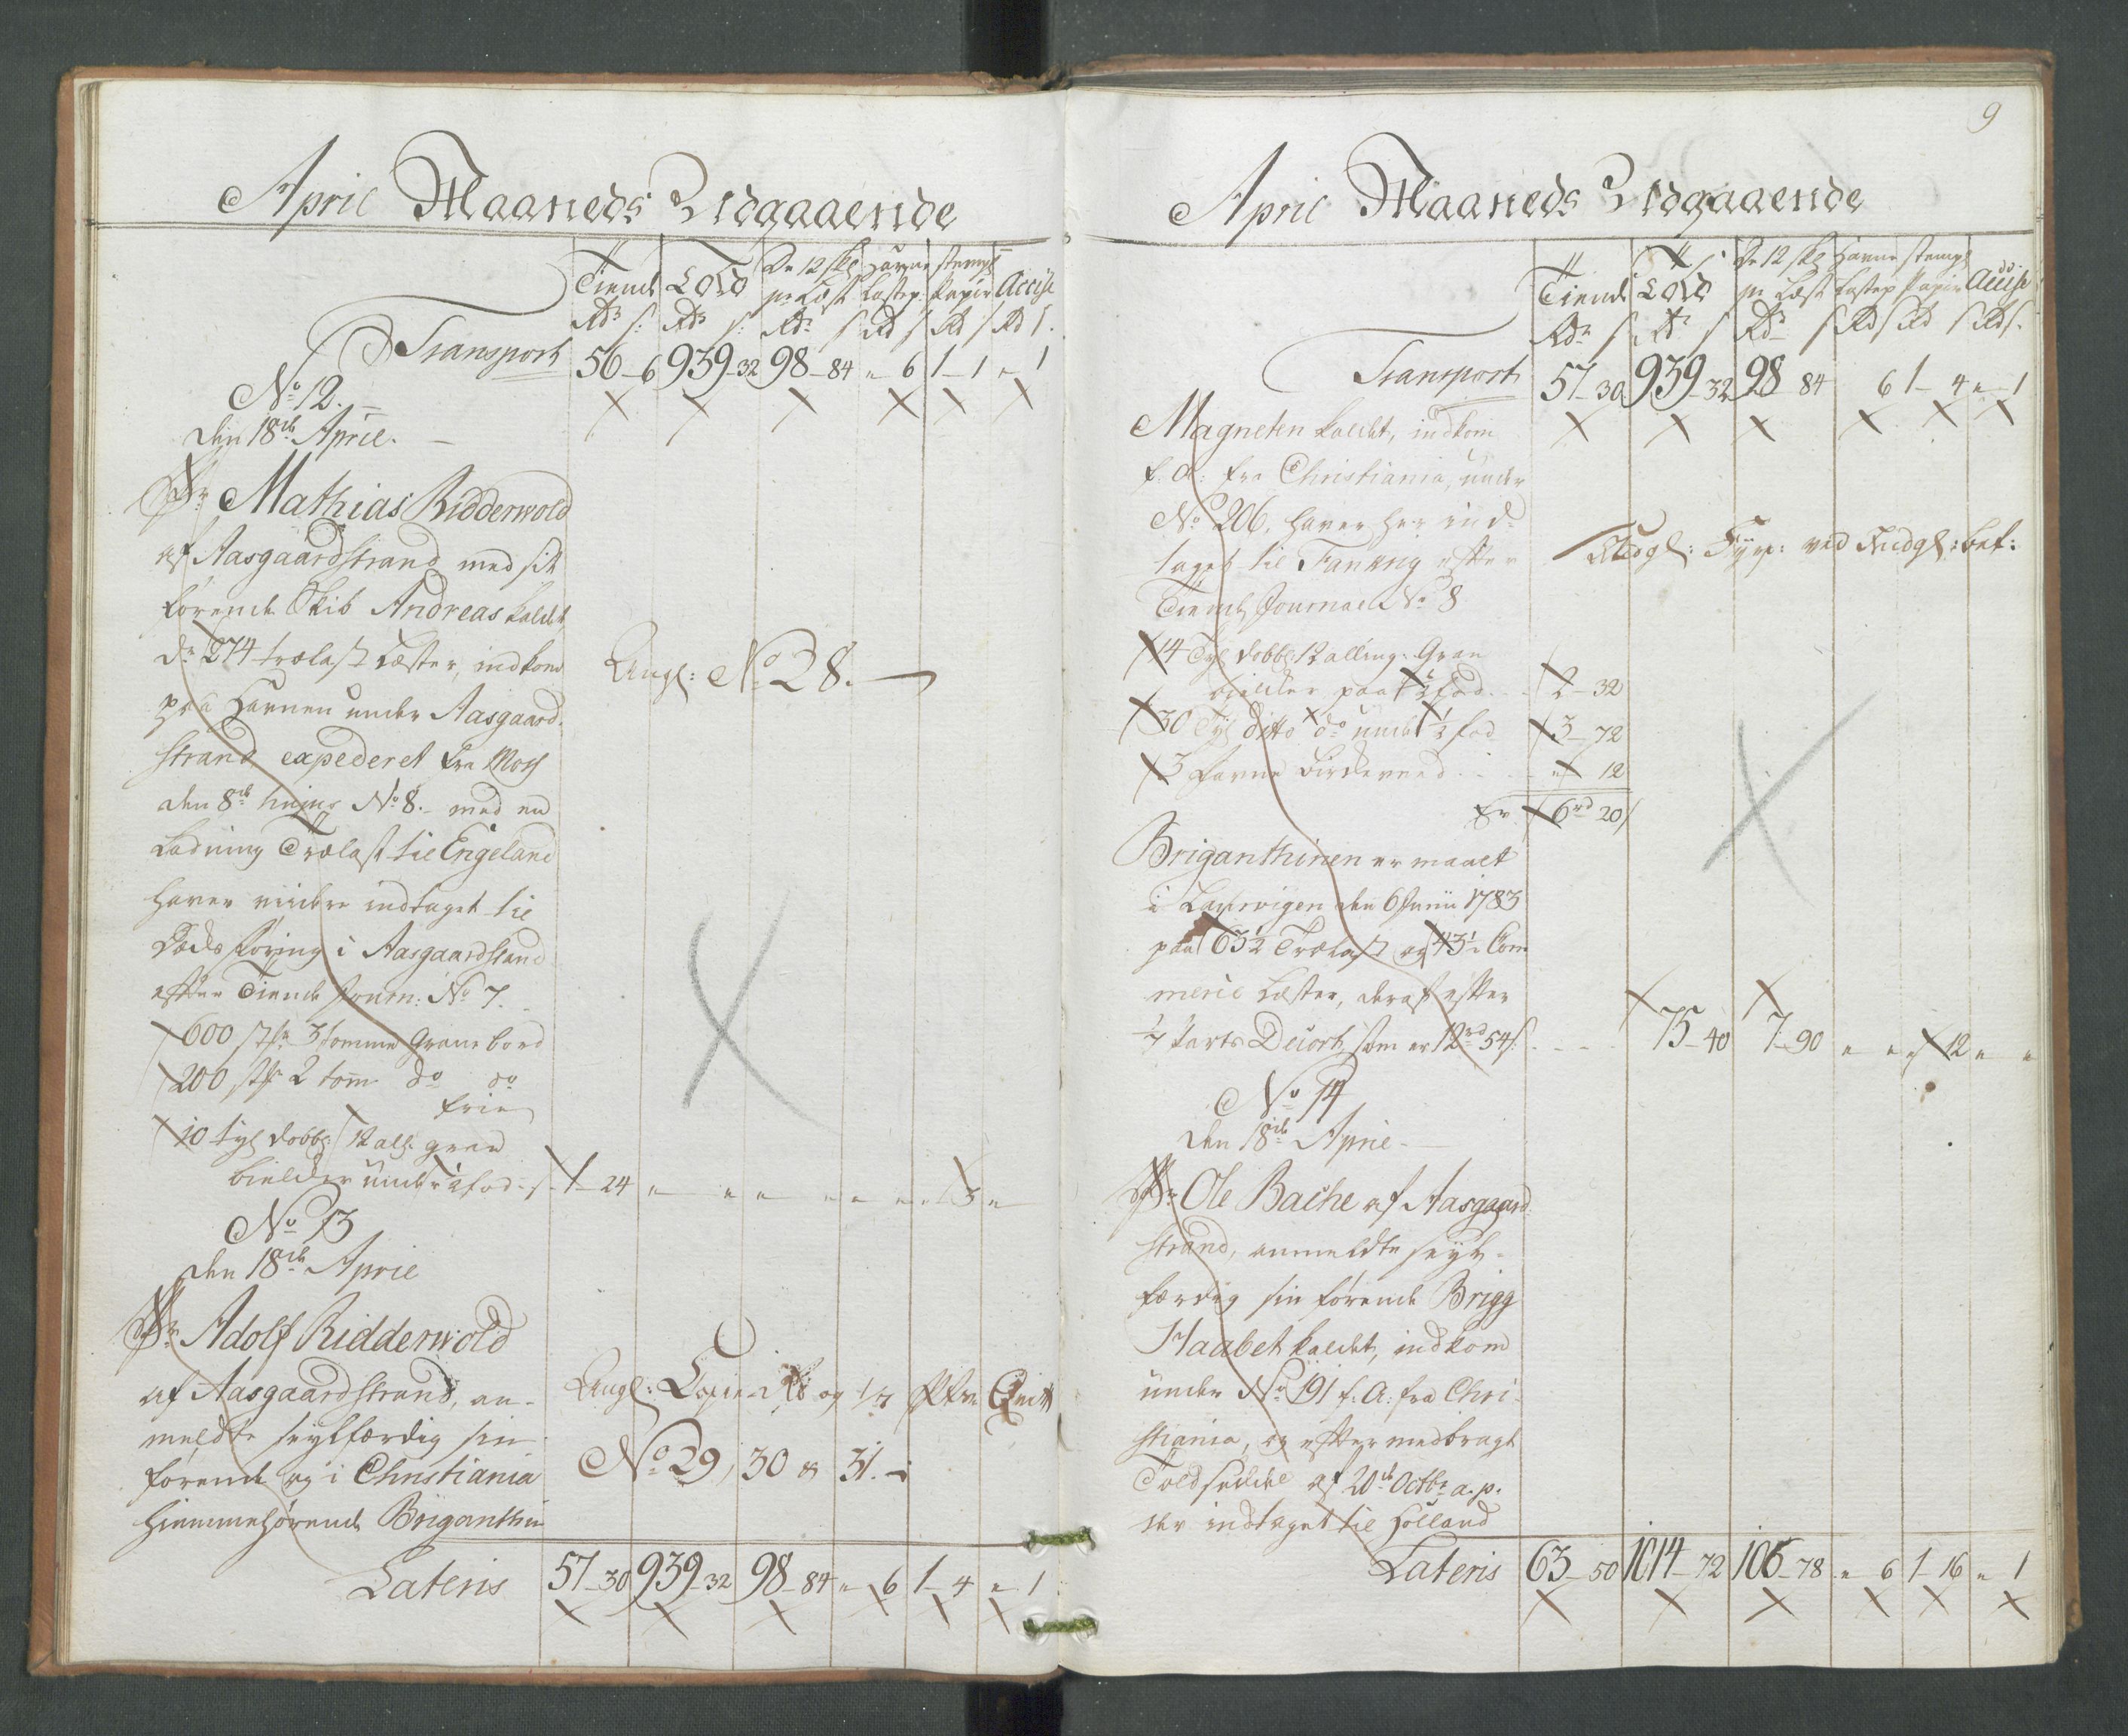 April Maaneds Udgaaende
Tiende Told De 12 skl pr Læst Havne Lastep. Stempl Papir Accise
Rdr s: Rdr s: Rdr s Rd s Rd s Rd s.
Transport 56-6 939-32 98-84 " 6 1-1 " 1
No 12.
den 18de April.
Sr Mathias Ridderwold
af Aasgaardstrand med sit
førende Skib Andreas kaldet
dr 274 trælast Læster, indkom
paa Havnen under Aasgaard-
strand expederet fra Moss
den 8de hujus No 8. med en
Ladning Trælast til Engeland
haver videre indtaget til
Dødsføring i Aasgaardstrand
efter Tiende Journ: No 7.
600 stkr 3 tomme Grane bord
200 stkr 2 tom do do
frie
10 tyl dobb: 12 all: gran
bielker under ½ fod 1-24 " " " " " " 3 "
Angl: No 28.
No 13
den 18de April
Sr Adolf Ridderwold
af Aasgaardstrand, an-
meldte seylfærdig sin
førende og i Christiania
hiemmehørende Briganthin
Angl: Copie og 1/7
No 29, 30 & 31.
Lateris 57-30 939-32 98-84 " 6 1-4 " 1
9
April Maaneds Udgaaende
Tiende Told De 12 skl pr Læst Havne Lastep Stempl Papir Accise
Rdr s Rdr s Rdr s Rd s Rd s Rd s.
Transport 57-30 939-32 98-84 6 1-4 " 1
Magneten kaldet, indkom
f. A: fra Christiania, under
No 206, haver her ind-
taget til Fanøe efter
Tiende Journal No 8
Udgl: Fyrp: ved Indgl: bet:
14 Tyl dobb: 12 alling: Gran
bielker paa ½ fod 2-32
30 Tyl ditto do under ½ fod 3-72
3 Favne Birkeveed " 12
er 6rd 20s
Briganthinen er maalt
i Laurvigen den 6 Junii 1783
paa 63½ Trælast og 43½ Com-
merce Læster, deraf efter
1/7 Parts Decort, som er 12rd 54s: 75-40 7-90 " " " 12 " "
No 14
den 18de April
Sr Ole Bache af Aasgaard-
strand, anmeldte seyl-
færdig sin førende Brigg
Haabet kaldet, indkom
under No 191 f: A: fra Chri-
stiania, og efter medbragt
Toldseddel af 20de Octbr a. p.
der indtaget til Holland
Lateris 63-50 1014-72 106-78 " 6 1-16 " 1